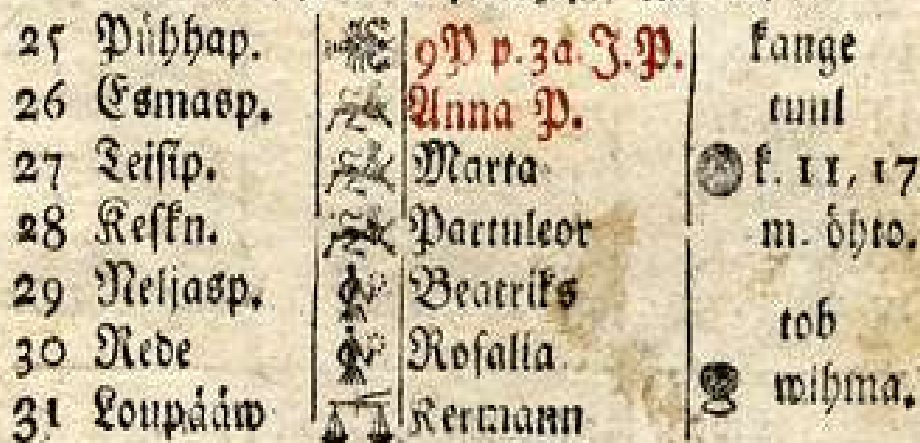 25 Pühhap. 9 P p. 3a. J. P. kange
26 Esmasp. Anna P. tuul
27 Teisip. Marta k. 11, 17
28 Keskn. Partuleor m. öhto.
29 Neljasp. Beatriks
30 Rede Rosalia tob
31 Loupääw Kermann wihma.